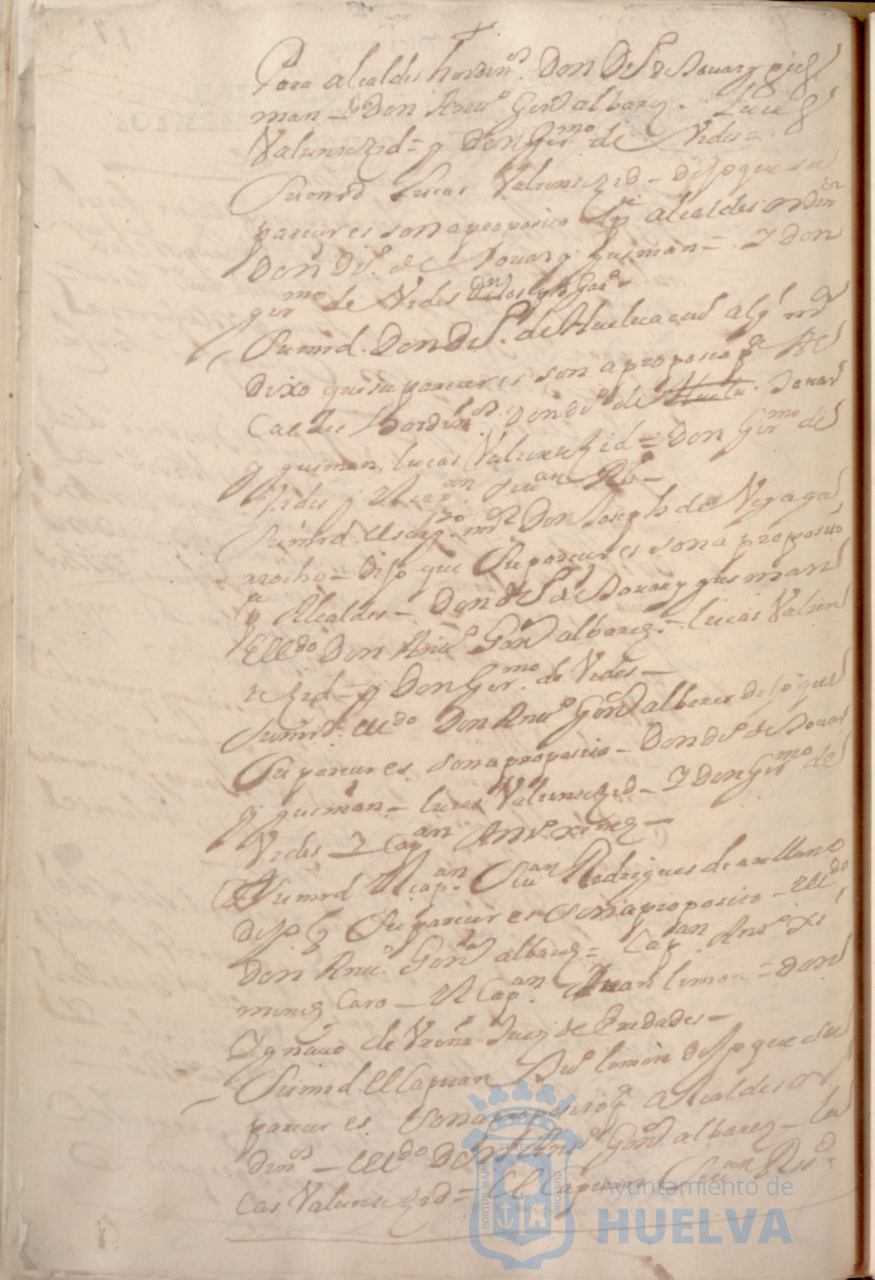 Para alcaldes hordin.os Don D.o de Tovar y gus
man – Don Ant.o Gonz albarez – Lucas
Valensuzid = y Don Ger.mo de Vides =
Sumrd Lucas Valensuzid – dijo que su
parecer es son aproposito p.a alcaldes ordin.os
Don D.o de Tovar y gusman = Y Don
ger.mo de Vides
Sumrd. Don D.o de Huelva
Dixo que su parecer es son aproposito p.a Al
Caldes hordin.os Don D.o de Tovar
y gusman. lucas Valensuzid = Don Ger.mo de
Vides y el cap.an Juan
Sumrd. el sarg.to m.or Don Joseph de Vega ga
rrocho – Dijo que Su parecer es son a proposito
p.a Alcaldes – Don D.o de Tovar y gusman
El l.do Don Ant.o Gonz albarez – lucas Valen
zuzid = y Don Ger.mo de Vides –
Sumrd. el l.do Don Ant.o Gonz albarez dijo que
Su parecer es son aproposito – Don D.o de Tovar
y gusman – lucas Valensuzid – Y Don Ger.mo de
Vides – Y Cap.an Ant.o xi
Sumrd el cap.an Juan Rodrigues de arellano
dijo q Su parecer es son aproposito – el l.do
Don Ant.o Gonz albarez = Cap.an Ant.o Xi
menez Caro – el Cap.an Juan limon = Don
Ygnacio de Vreña Juez de Eredades –
Sumrd. el Capitan limon dijo que su
parecer es son aproposito p.a Alcaldes or
din.os – el l.do Don Ant.o Gonz albarez – lu
cas Valensuzid = El Capitan
Ayuntamiento de
HUELVA